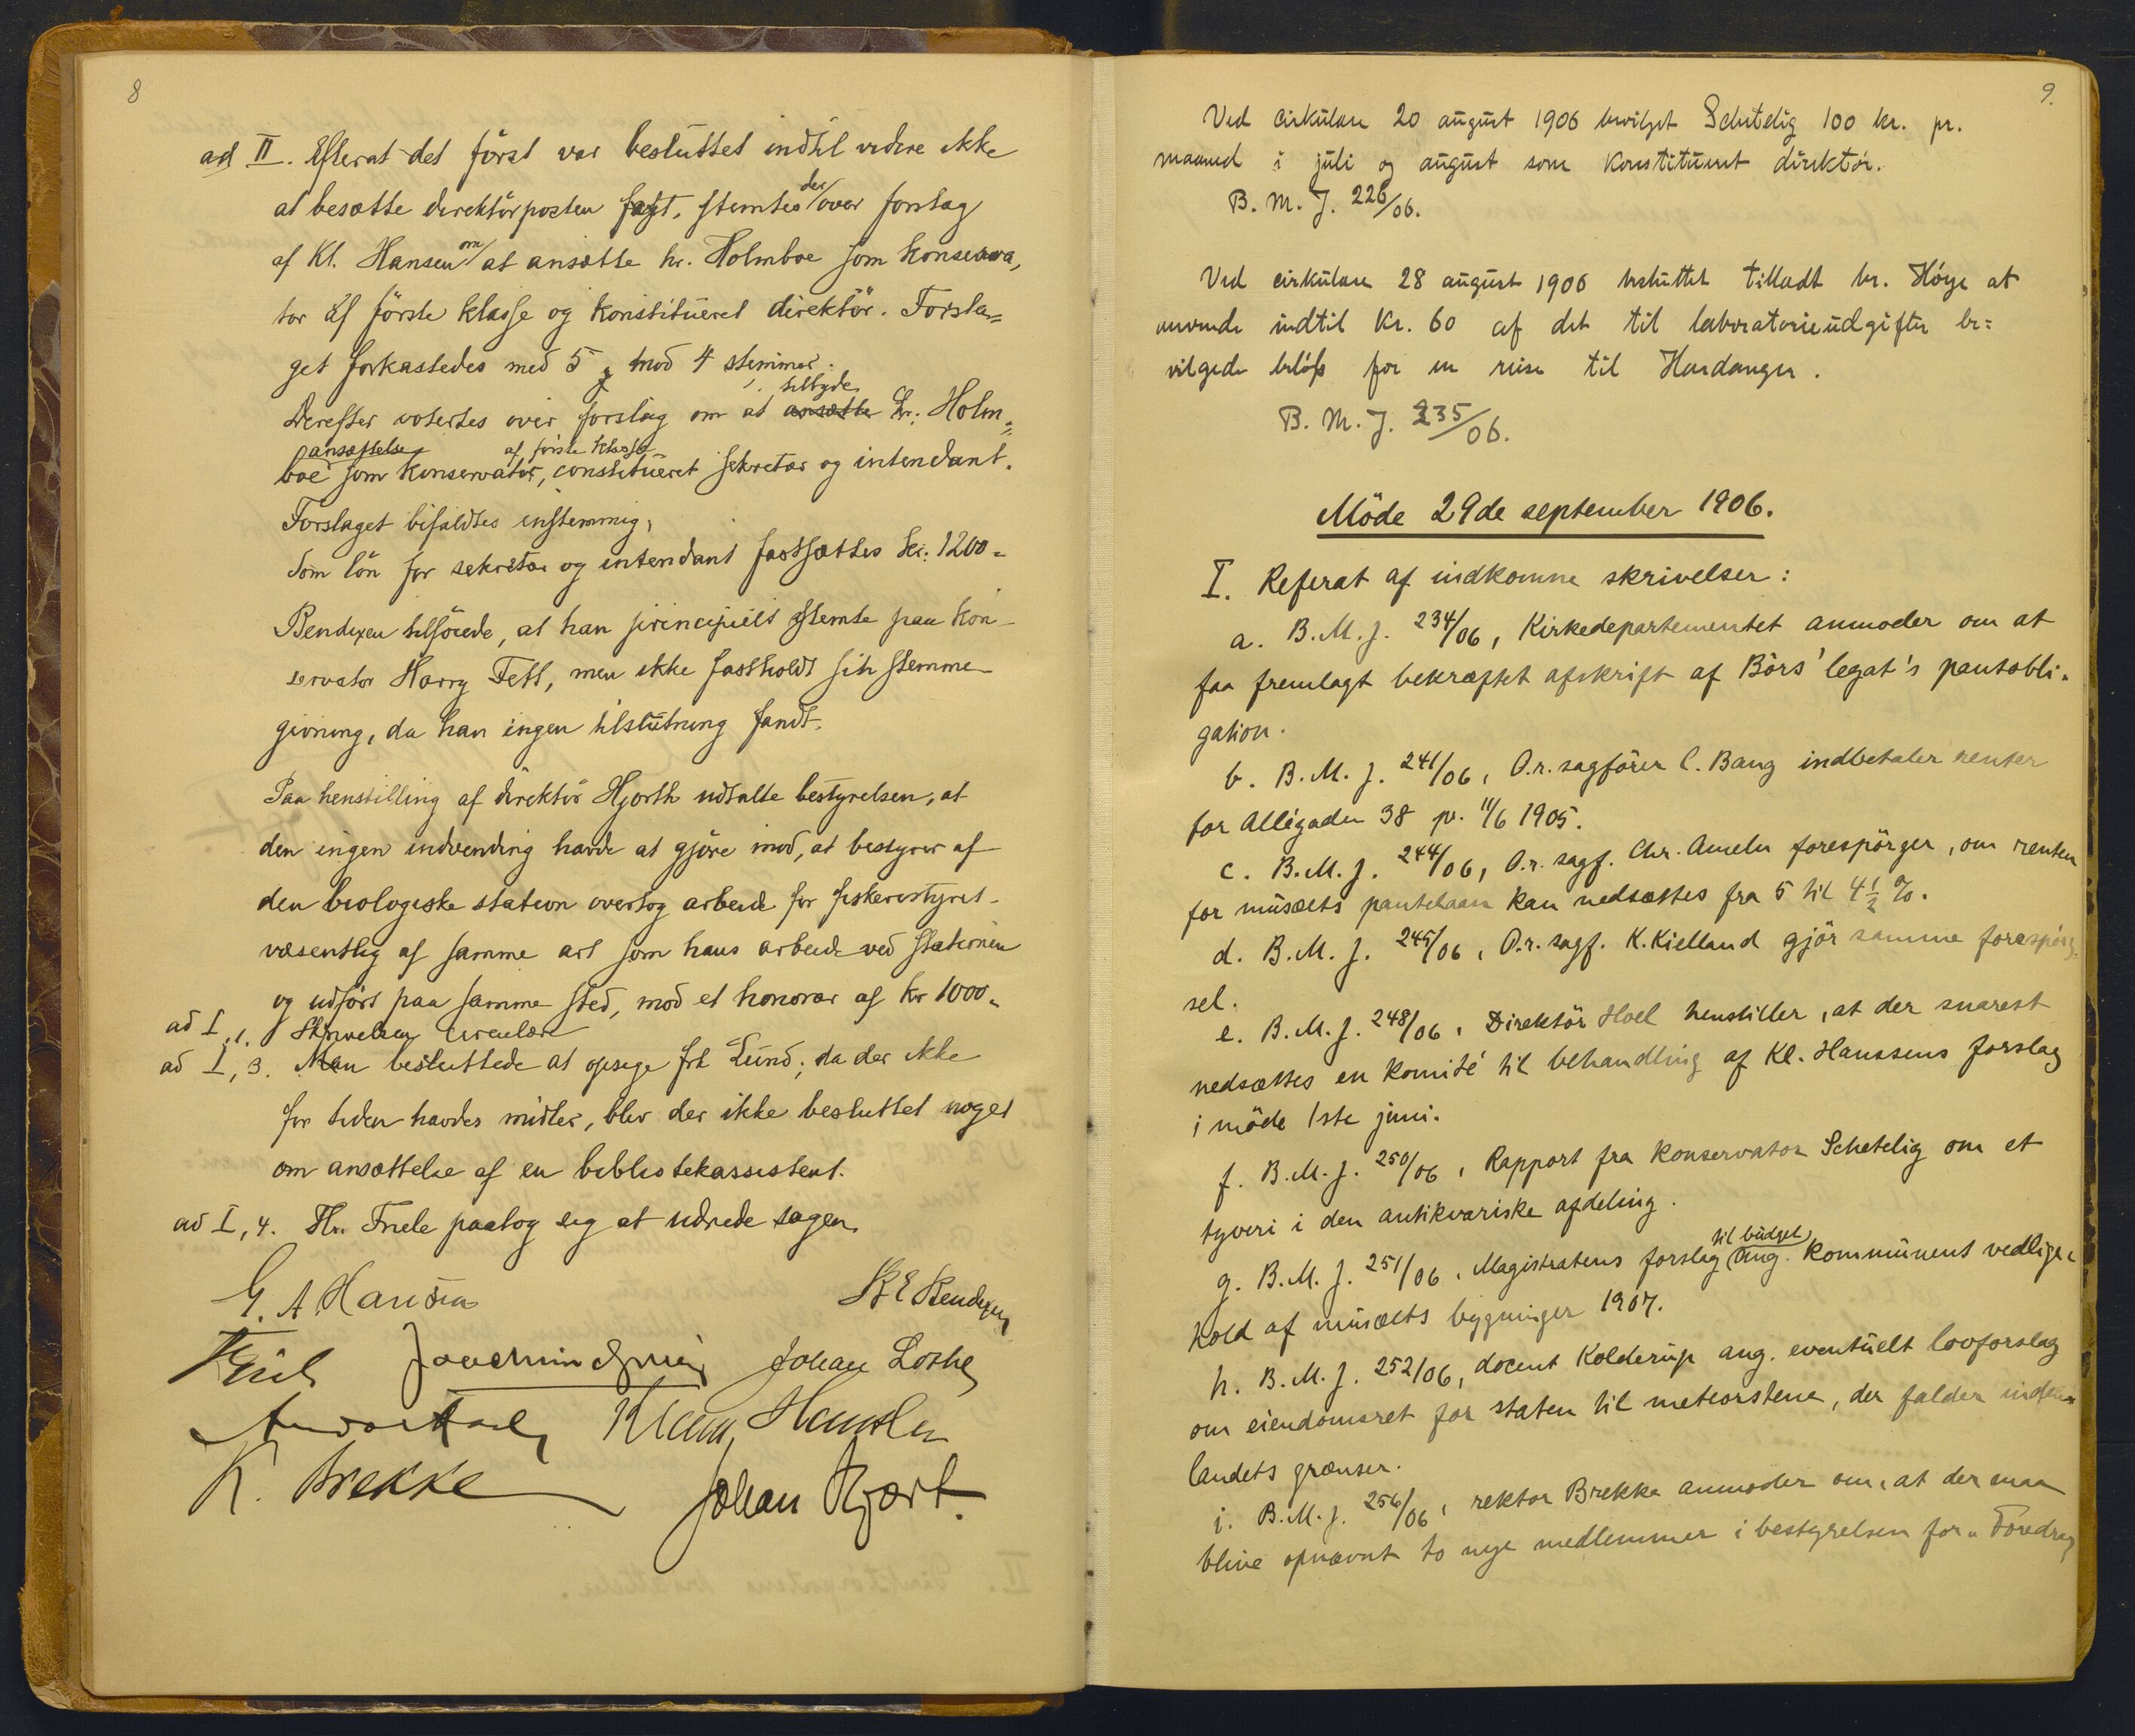 8
ad II. Efterat det först var besluttet indtil videre ikke
at besætte direktörposten fast, stemtes der over forslag
af Kl. Hansen om at ansætte hr. Holmboe som konserva,
tor af förste klasse og konstitueret direktör. Forsla=
get forkastedes med 5 mod 4 stemmer.
Derefter votertes over forslag om at ansætte tilbyde hr. Holm=
boe ansættelse som konservator af förste klasse, constitueret sekretær og intendant.
Forslaget bifaldtes enstemmig,
Som lön for sekretær og intendant fastsættes kr. 1200=
Bendixen tilförede, at han principielt stemte paa kon-
servator Harry Fett, men ikke fastholdt sin stemme-
givning, da han ingen tilslutning fandt.
Paa henstilling af direktör Hjorth udtalte bestyrelsen, at
den ingen indvending havde at gjöre mod, at bestyrer af
den biologiske station overtog arbeide for fiskeristyret-
væsentlig af samme art som hans arbeide ved stationen
og udfört paa samme sted, mod et honorar af kr 1000=
ad I, 1. Skrivelsen circulere
ad I, 3. Man besluttede at opsige frk Lund; da der ikke
for tiden havdes midler, blev der ikke besluttet noget
om ansættelse af en bibliotekassistent.
ad I, 4. Hr. Friele paatog sig at udrede sagen.
G. A. Hansen
B E Bendixen
Joachim Grieg Johan Lothe
Klaus Hanssen
K. Brekke
Johan Hjort.
9.
Ved cirkulære 20 august 1906 bevilget Schetelig 100 kr. pr.
maaned i juli og august som konstitueret direktör.
B. M. J. 226/06.
Ved cirkulære 28 august 1906 besluttet tilladt hr. Höye at
anvende indtil kr. 60 af det til laboratorieudgifter be=
vilgede belöb for en reise til Hardanger.
B. M. J. 235/06.
Möde 29de september 1906.
I. Referat af indkomne skrivelser:
a. B. M. J. 234/06, Kirkedepartementet anmoder om at
faa fremlagt bekræftet afskrift af Börs' legat's pantobli=
gation.
b. B. M. J. 241/06, O.r. sagförer C. Bang indbetaler renter
for Allégaden 38 pr. 11/6 1905.
c. B. M. J. 244/06, O.r. sagf. Chr. Ameln forespörger, om renten
for musæets pantelaan kan nedsættes fra 5 til 4½ %.
d. B. M. J. 245/06, O.r. sagf. K. Kielland gjör samme forespörg=
sel.
e. B. M. J. 248/06, Direktör Hoel henstiller, at der snarest
nedsættes en komité til behandling af Kl. Hanssens forslag
i möde 1ste juni.
f. B. M. J. 250/06, Rapport fra konservator Schetelig om et
tyveri i den antikvariske afdeling.
g. B. M. J. 251/06, Magistratens forslag til budget ang. kommunens vedlige=
hold af musæets bygninger 1907.
h. B. M. J. 252/06, docent Kolderup ang. eventuelt lovforslag
om eiendomsret for staten til meteorstene, der falder inden
landets grænser.
i. B. M. J. 256/06, rektor Brekke anmoder om, at der maa
blive opnævnt to nye medlemmer i bestyrelsen for "Foredrag